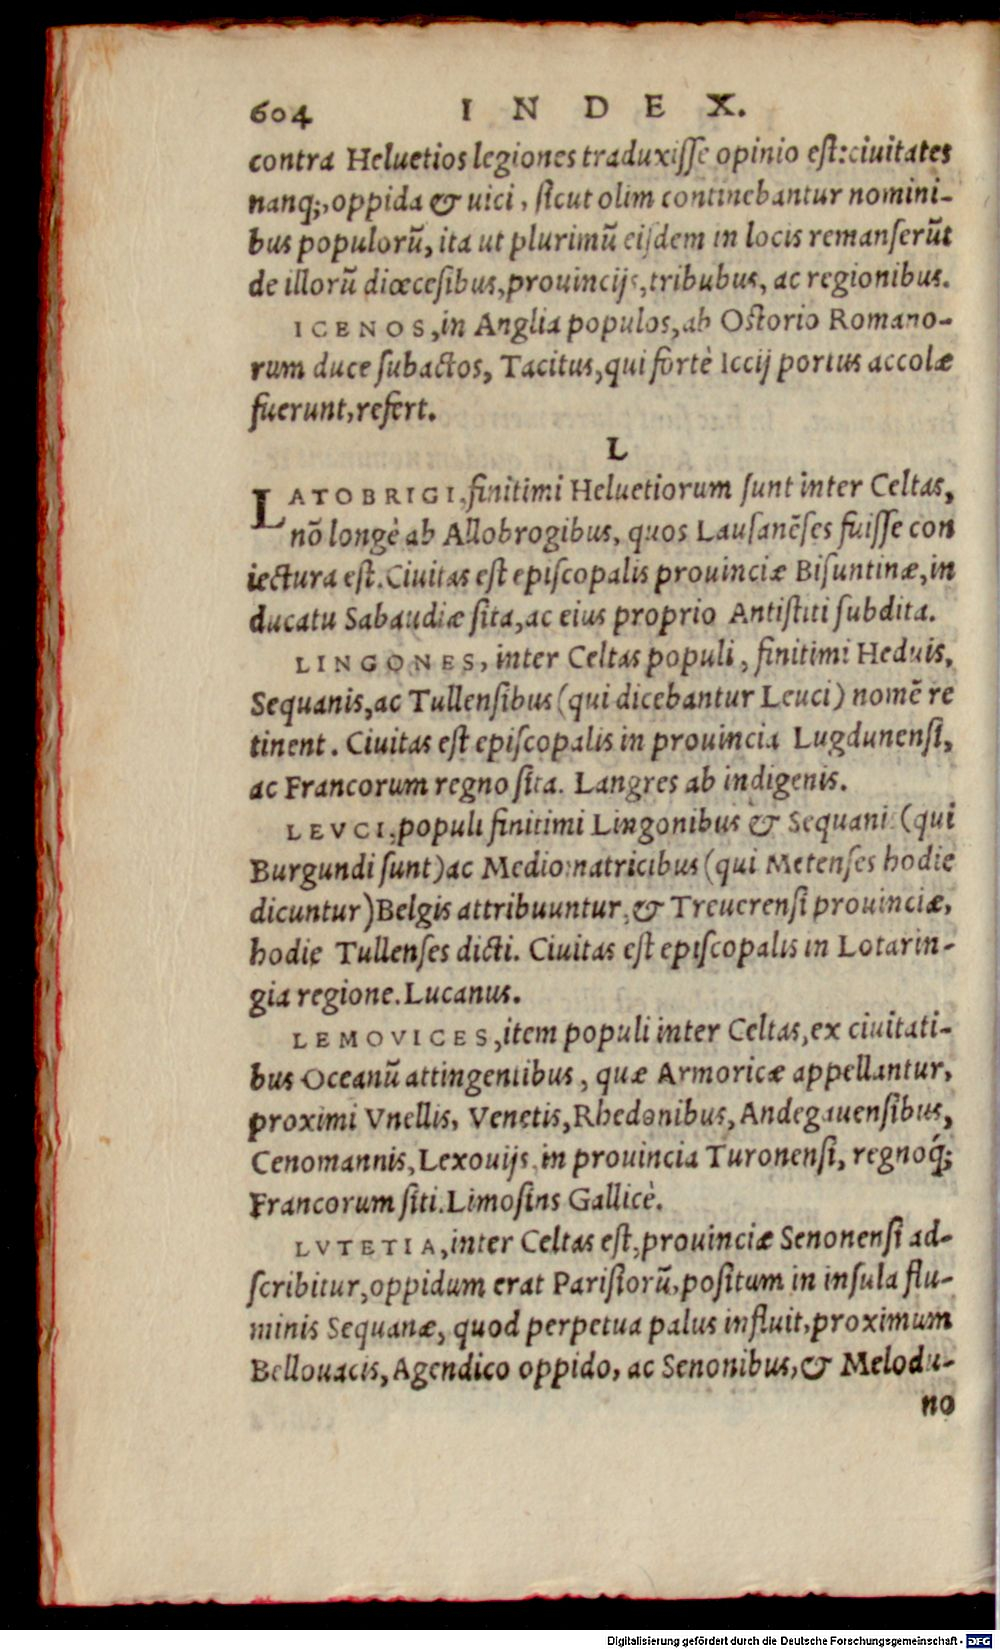 604 INDEX.
contra Heluetios legiones traduxiſſe opinio eſt: ciuitates
nanq;, oppida & uici, ſicut olim continebantur nomini-
bus populorũ, ita ut plurimũ eiſdem in locis remanſerũt
de illorũ diœceſibus, prouincijs, tribubus, ac regionibus.
ICENOS, in Anglia populos, ab Oſtorio Romano-
rum duce ſubactos, Tacitus, qui fortè Iccij portus accolæ
fuerunt, refert.
L
LATOBRIGI, finitimi Heluetiorum ſunt inter Celtas,
nõ longè ab Allobrogibus, quos Lauſanẽſes fuiſſe con
iectura eſt. Ciuitas eſt epiſcopalis prouinciæ Biſuntinæ, in
ducatu Sabaudiæ ſita, ac eius proprio Antiſtiti ſubdita.
LINGONES, inter Celtas populi, finitimi Heduis,
Sequanis, ac Tullenſibus (qui dicebantur Leuci) nomẽ re
tinent. Ciuitas eſt epiſcopalis in prouincia Lugdunenſi,
ac Francorum regno ſita. Langres ab indigenis.
LEVCI, populi finitimi Lingonibus & Sequani (qui
Burgundi ſunt) ac Mediomatricibus (qui Metenſes hodie
dicuntur) Belgis attribuuntur, & Treuerenſi prouinciæ,
hodie Tullenſes dicti. Ciuitas eſt epiſcopalis in Lotarin-
gia regione. Lucanus.
LEMOVICES, item populi inter Celtas, ex ciuitati-
bus Oceanũ attingentibus, quæ Armoricæ appellantur,
proximi Vnellis, Venetis, Rhedonibus, Andegauenſibus,
Cenomannis, Lexouijs, in prouincia Turonenſi, regnoq́;
Francorum ſiti. Limoſins Gallicè.
LVTETIA, inter Celtas eſt, prouinciæ Senonenſi ad-
ſcribitur, oppidum erat Pariſiorũ, poſitum in inſula flu-
minis Sequanæ, quod perpetua palus influit, proximum
Bellouacis, Agendico oppido, ac Senonibus, & Melodu-
no
Digitalisierung gefördert durch die Deutsche Forschungsgemeinschaft - DFG